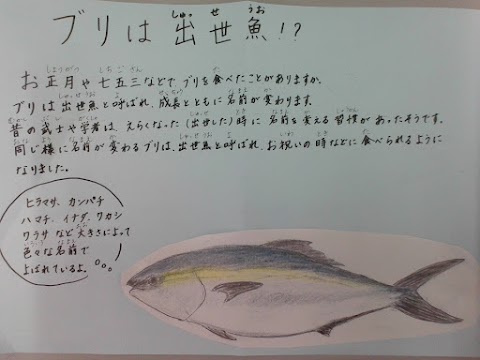 ブリは 出世魚!?
お正月や七五三などで、ブリを食べたことがありますか。
ブリは出世魚と呼ばれ、成長とともに名前が変わります。
昔の武士や学者は、えらくなった(出世した)時に名前を変える習慣があったそうです。
同じ様に名前が変わるブリは、出世魚と呼ばれ、お祝いの時などに食べられるように
なりました。
ヒラマサ、カンパチ
ハマチ、イナダ、ワカシ
ワラサなど大きさによって
色々な名前で
よばれているよ。